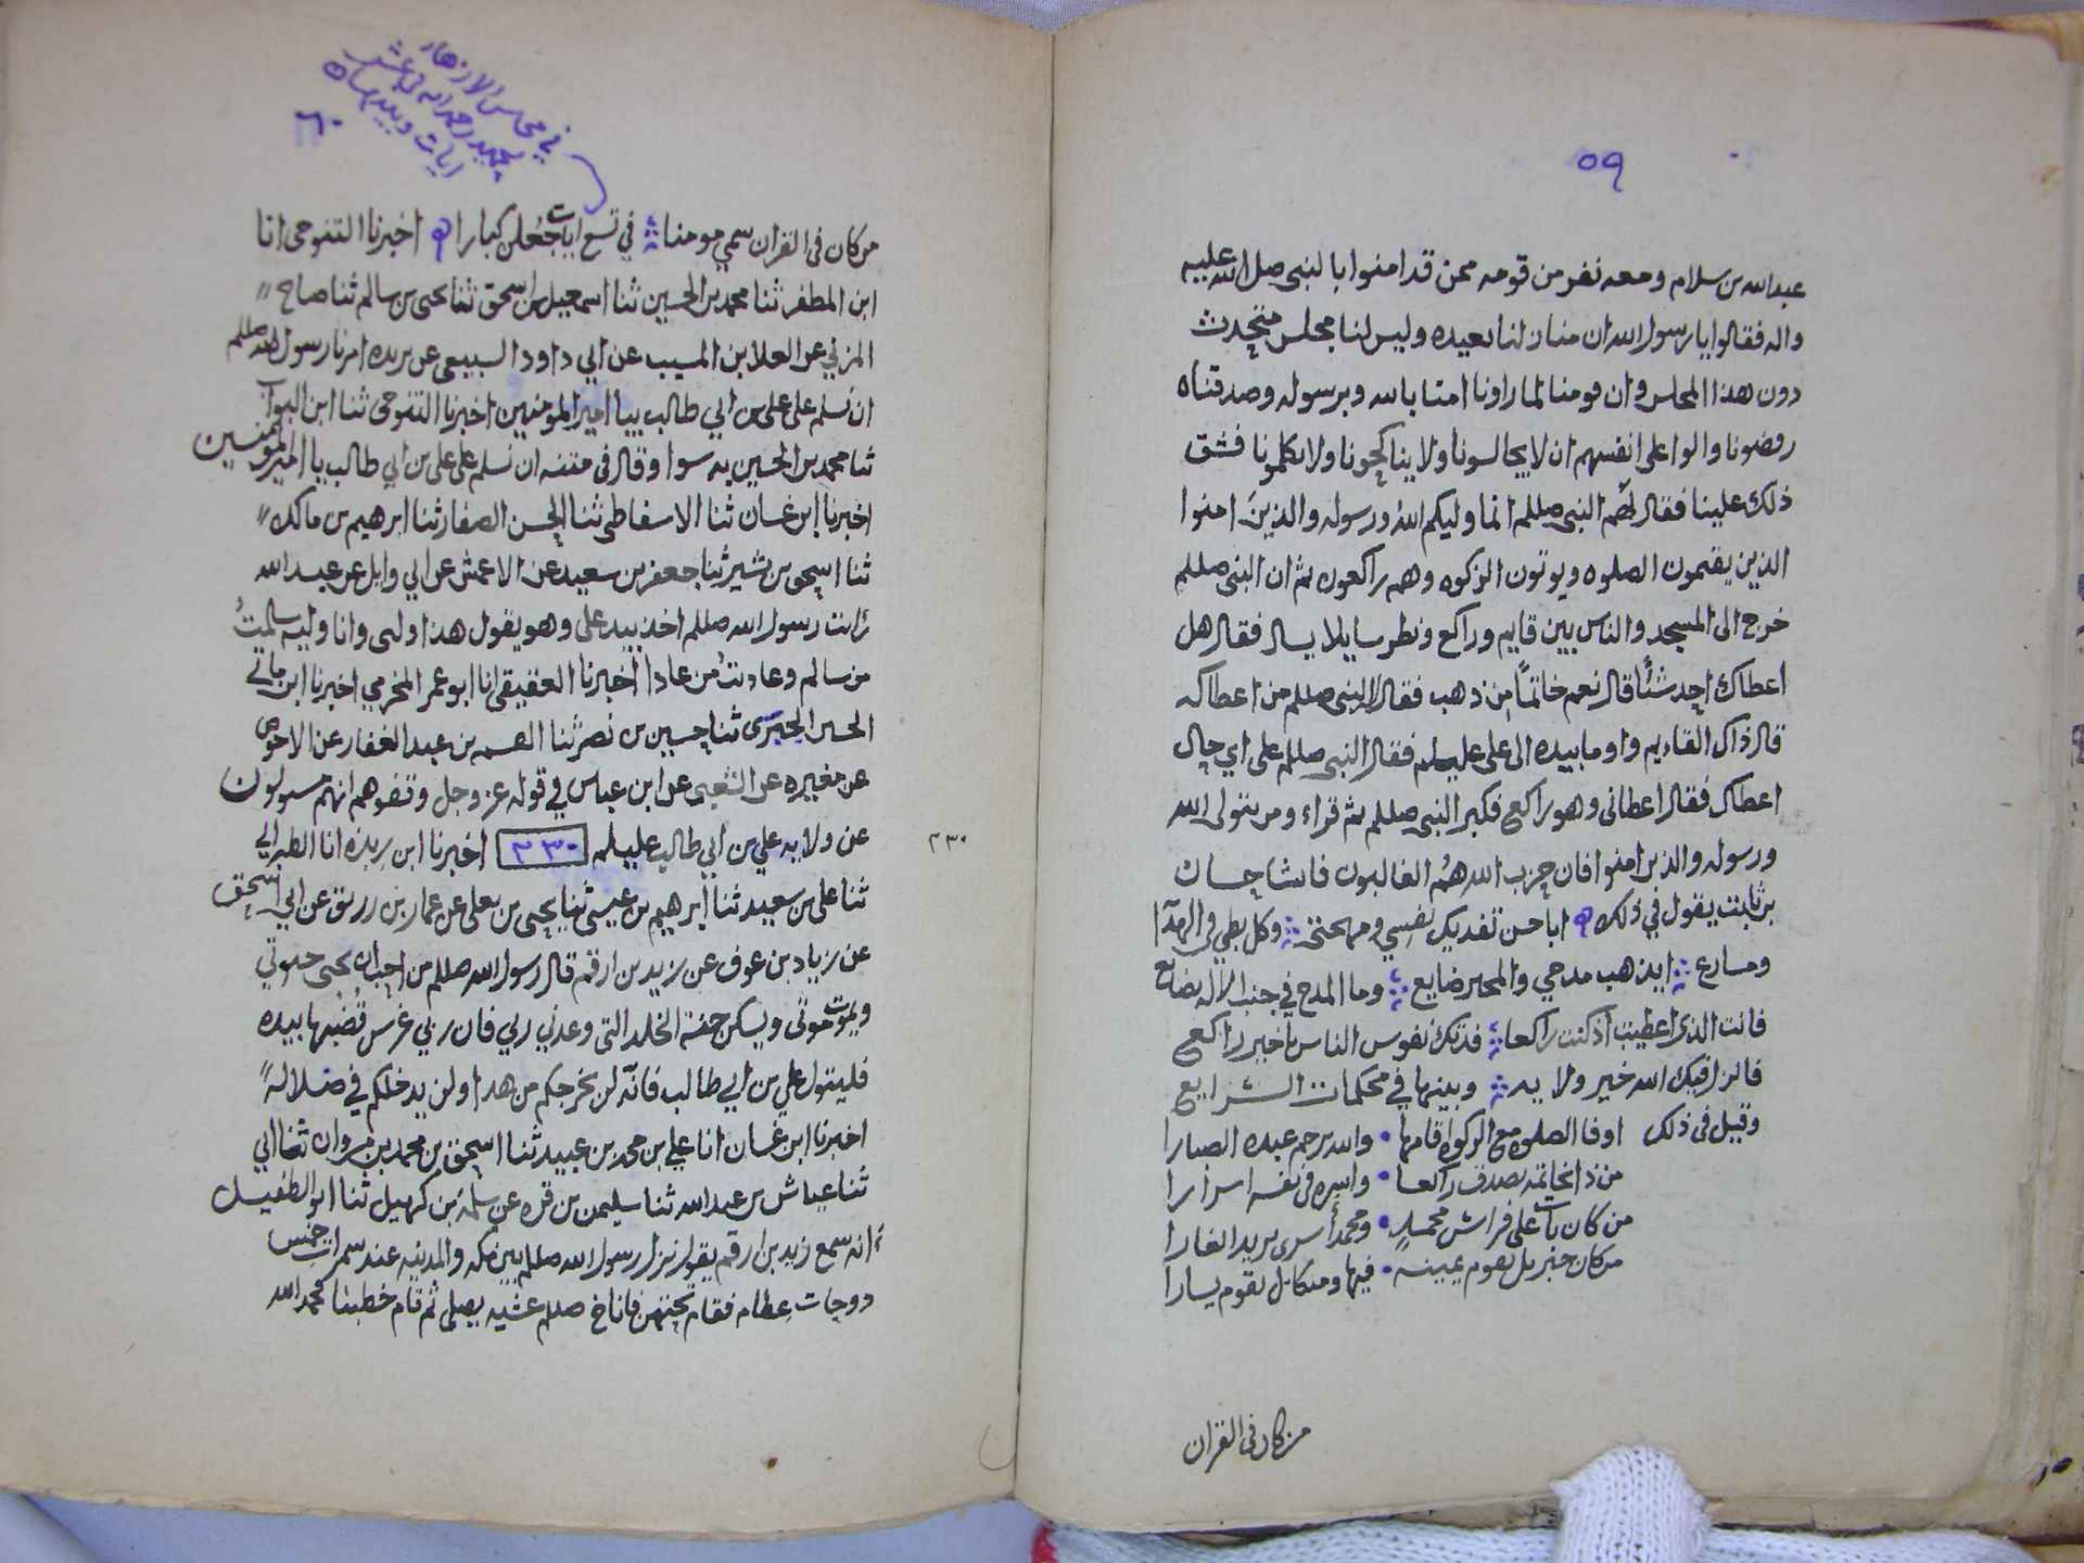 ٥٩
عبدالله بن سلام ومعه نفر من قومه ممن قد امنوا بالنبى صلى الله عليه
واله فقالوا يا رسول الله ان منازلنا بعيده وليس لنا مجلس متحدث
دون هذا المجلس وان قومنا لما راونا امنا بالله وبرسوله وصدقناه
رفضونا والوا على انفسهم ان لا يجالسونا ولا يناكحونا ولا يكلمونا فشق
ذلك علينا فقال لهم النبى صللم انما وليكم الله ورسوله والذين امنوا
الذين يقيمون الصلوه ويوتون الزكوه وهم راكعون ثم ان النبى صللم
خرج الى المسجد والناس بين قايم وراكع ونظر سايلا يسال فقال هل
اعطاك احد شئا قال نعم خاتما من ذهب فقال له النبى صللم من اعطاكه
قال ذاك القايم واوما بيده الى على عليلم فقال النبى صللم على اي حال
اعطاك فقال اعطانى وهو راكع فكبر النبى صللم ثم قراء ومن يتولى الله
ورسوله والذين امنوا فان حزب الله هم الغالبون فانشا حسان
بن ثابت يقول في ذلك ابا حسن تفديك نفسي ومهجتي وكل بطي فى الهدا
ومسارع ايذهب مدحي والمحبر ضايع وما المدح في جنب الاله بضايع
فانت الذى اعطيت اذ كنت راكعا فدتك نفوس الناس ياخير راكع
فانزل فيك الله خير ولايه وبينها في محكمات الشرايع
وقيل فى ذلك اوفا الصلوه مع الزكوه اقامها والله يرحم عبده الصبارا
من ذا بخاتمه تصدق راكعا واسره فى نفسه اسرارا
من كان بات على فراش محمد ومحمد اسرى يريد الغارا
من كان جبريل يقوم يمينه فيها وميكائل يقوم يسارا
من كان فى القران
في محاسن الازهار
ايات وبيديها
٦٠
من كان فى القران سمي مومنا في تسع ايات جعلن كبارا اخبرنا التنوحى انا
ابن المظفر ثنا محمد بن الحسين ثنا اسمعيل بن اسحق ثنا يحيى بن سالم ثنا صباح
المزني عن العلا بن المسيب عن ابي داود السبيعى عن بريده امرنا رسول الله صللم
ان نسلم على على بن ابي طالب بيا امير المومنين اخبرنا التنوحى ثنا ابن البواب
ثنا محمد بن الحسين به سوا وقال فى متنه ان نسلم على على بن ابي طالب يا امير المومنين
اخبرنا ابن غسان ثنا الاسفاطى ثنا الحسن الصفار ثنا ابرهيم بن مالك
ثنا اسحق بن بشير ثنا جعفر بن سعيد عن الاعمش عن ابي وايل عن عبد الله
رايت رسول الله صللم اخذ بيد على وهو يقول هذا وليى وانا وليه سالمت
من سالم وعاديت من عادا اخبرنا العقيقى انا ابو عمر المخرمي اخبرنا ابن ماتي
الحسن الحبرى ثنا حسين بن نصر ثنا القسم بن عبد الغفار عن الاحوص
عن مغيره عن الشعبى عن ابن عباس في قوله عز وجل وقفوهم انهم مسولون
عن ولايه علي بن ابي طالب عليلم ٢٣٠ اخبرنا ابن ريذه انا الطبراني
٢٣٠
ثنا على بن سعيد ثنا ابرهيم بن عيسى ثنا يحيى بن يعلى عن عمار بن رزيق عن ابي اسحق
عن زياد بن عوف عن زيد بن ارقم قال رسول الله صللم من احب ان يحيى حيوتي
ويموت موتى ويسكن جنة الخلد التى وعدني ربي فان ربي غرس قضبها بيده
فليتول علي بن ابي طالب فانه لن يخرجكم من هدا ولن يدخلكم في ضلالة
اخبرنا ابن غسان انا علي بن محمد بن عبيد ثنا اسحق بن محمد بن مروان ثنا ابي
ثنا عياش بن عبد الله ثنا سليمن بن قره عن سلمة بن كهيل ثنا ابو الطفيل
انه سمع زيد بن ارقم يقول نزل رسول الله صللم بين مكه والمدينه عند سمرات خمس
دوحات عظام فقام تحتهن فاناخ صللم عشيه يصلى ثم قام خطبنا فحمد الله